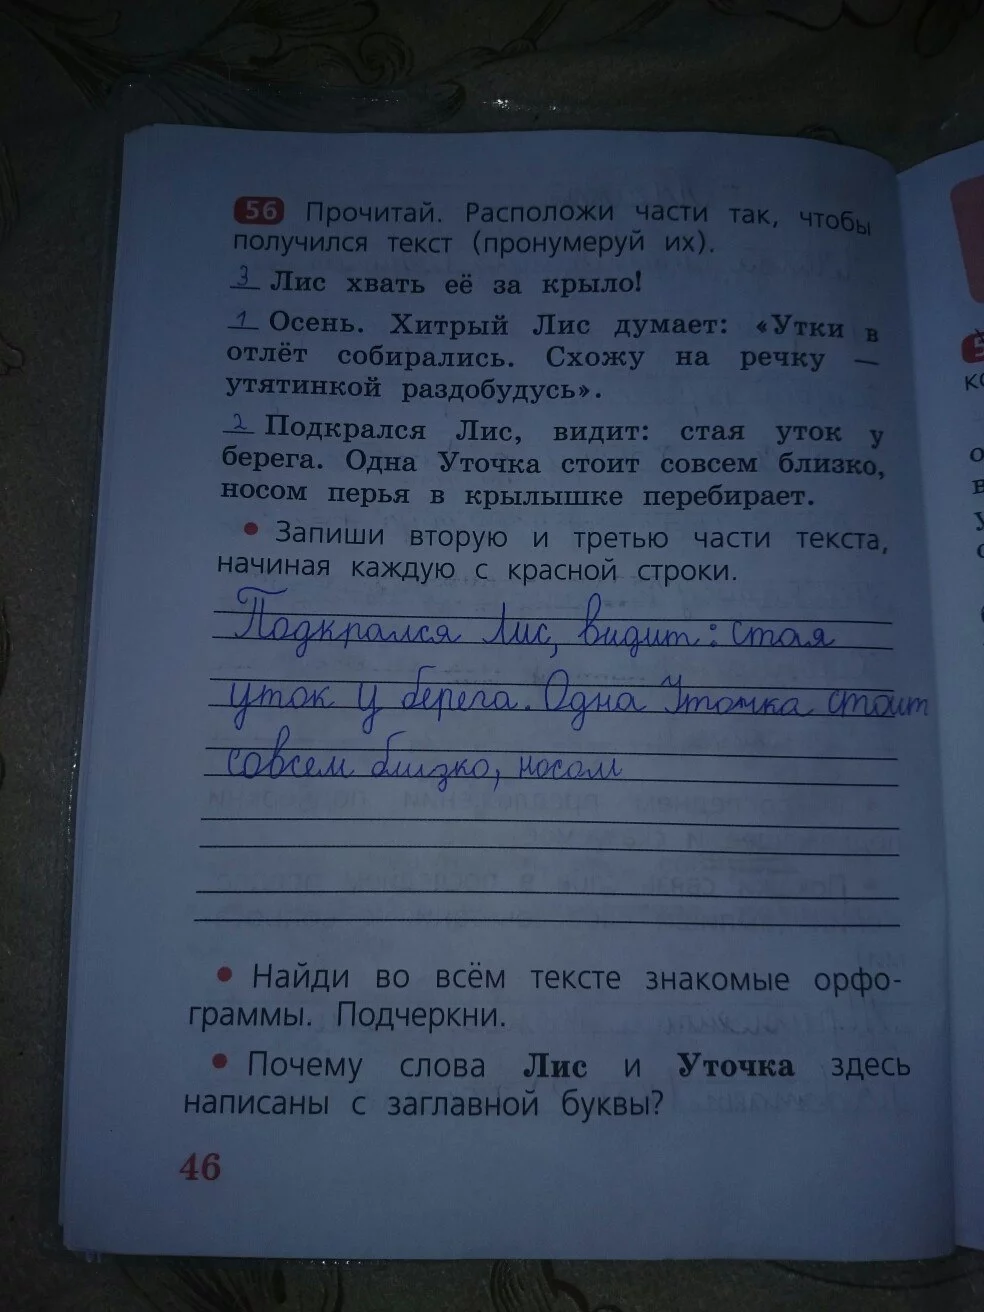 56 Прочитай. Расположи части так, чтобы
получился текст (пронумеруй их).
3 Лис хвать её за крыло!
1 Осень. Хитрый Лис думает: «Утки в
отлёт собирались. Схожу на речку —
утятинкой раздобудусь».
2 Подкрался Лис, видит: стая уток у
берега. Одна Уточка стоит совсем близко,
носом перья в крылышке перебирает.
• Запиши вторую и третью части текста,
начиная каждую с красной строки.
Подкрался Лис, видит: стая
уток у берега. Одна Уточка стоит
совсем близко, носом
• Найди во всём тексте знакомые орфо-
граммы. Подчеркни.
• Почему слова Лис и Уточка здесь
написаны с заглавной буквы?
46